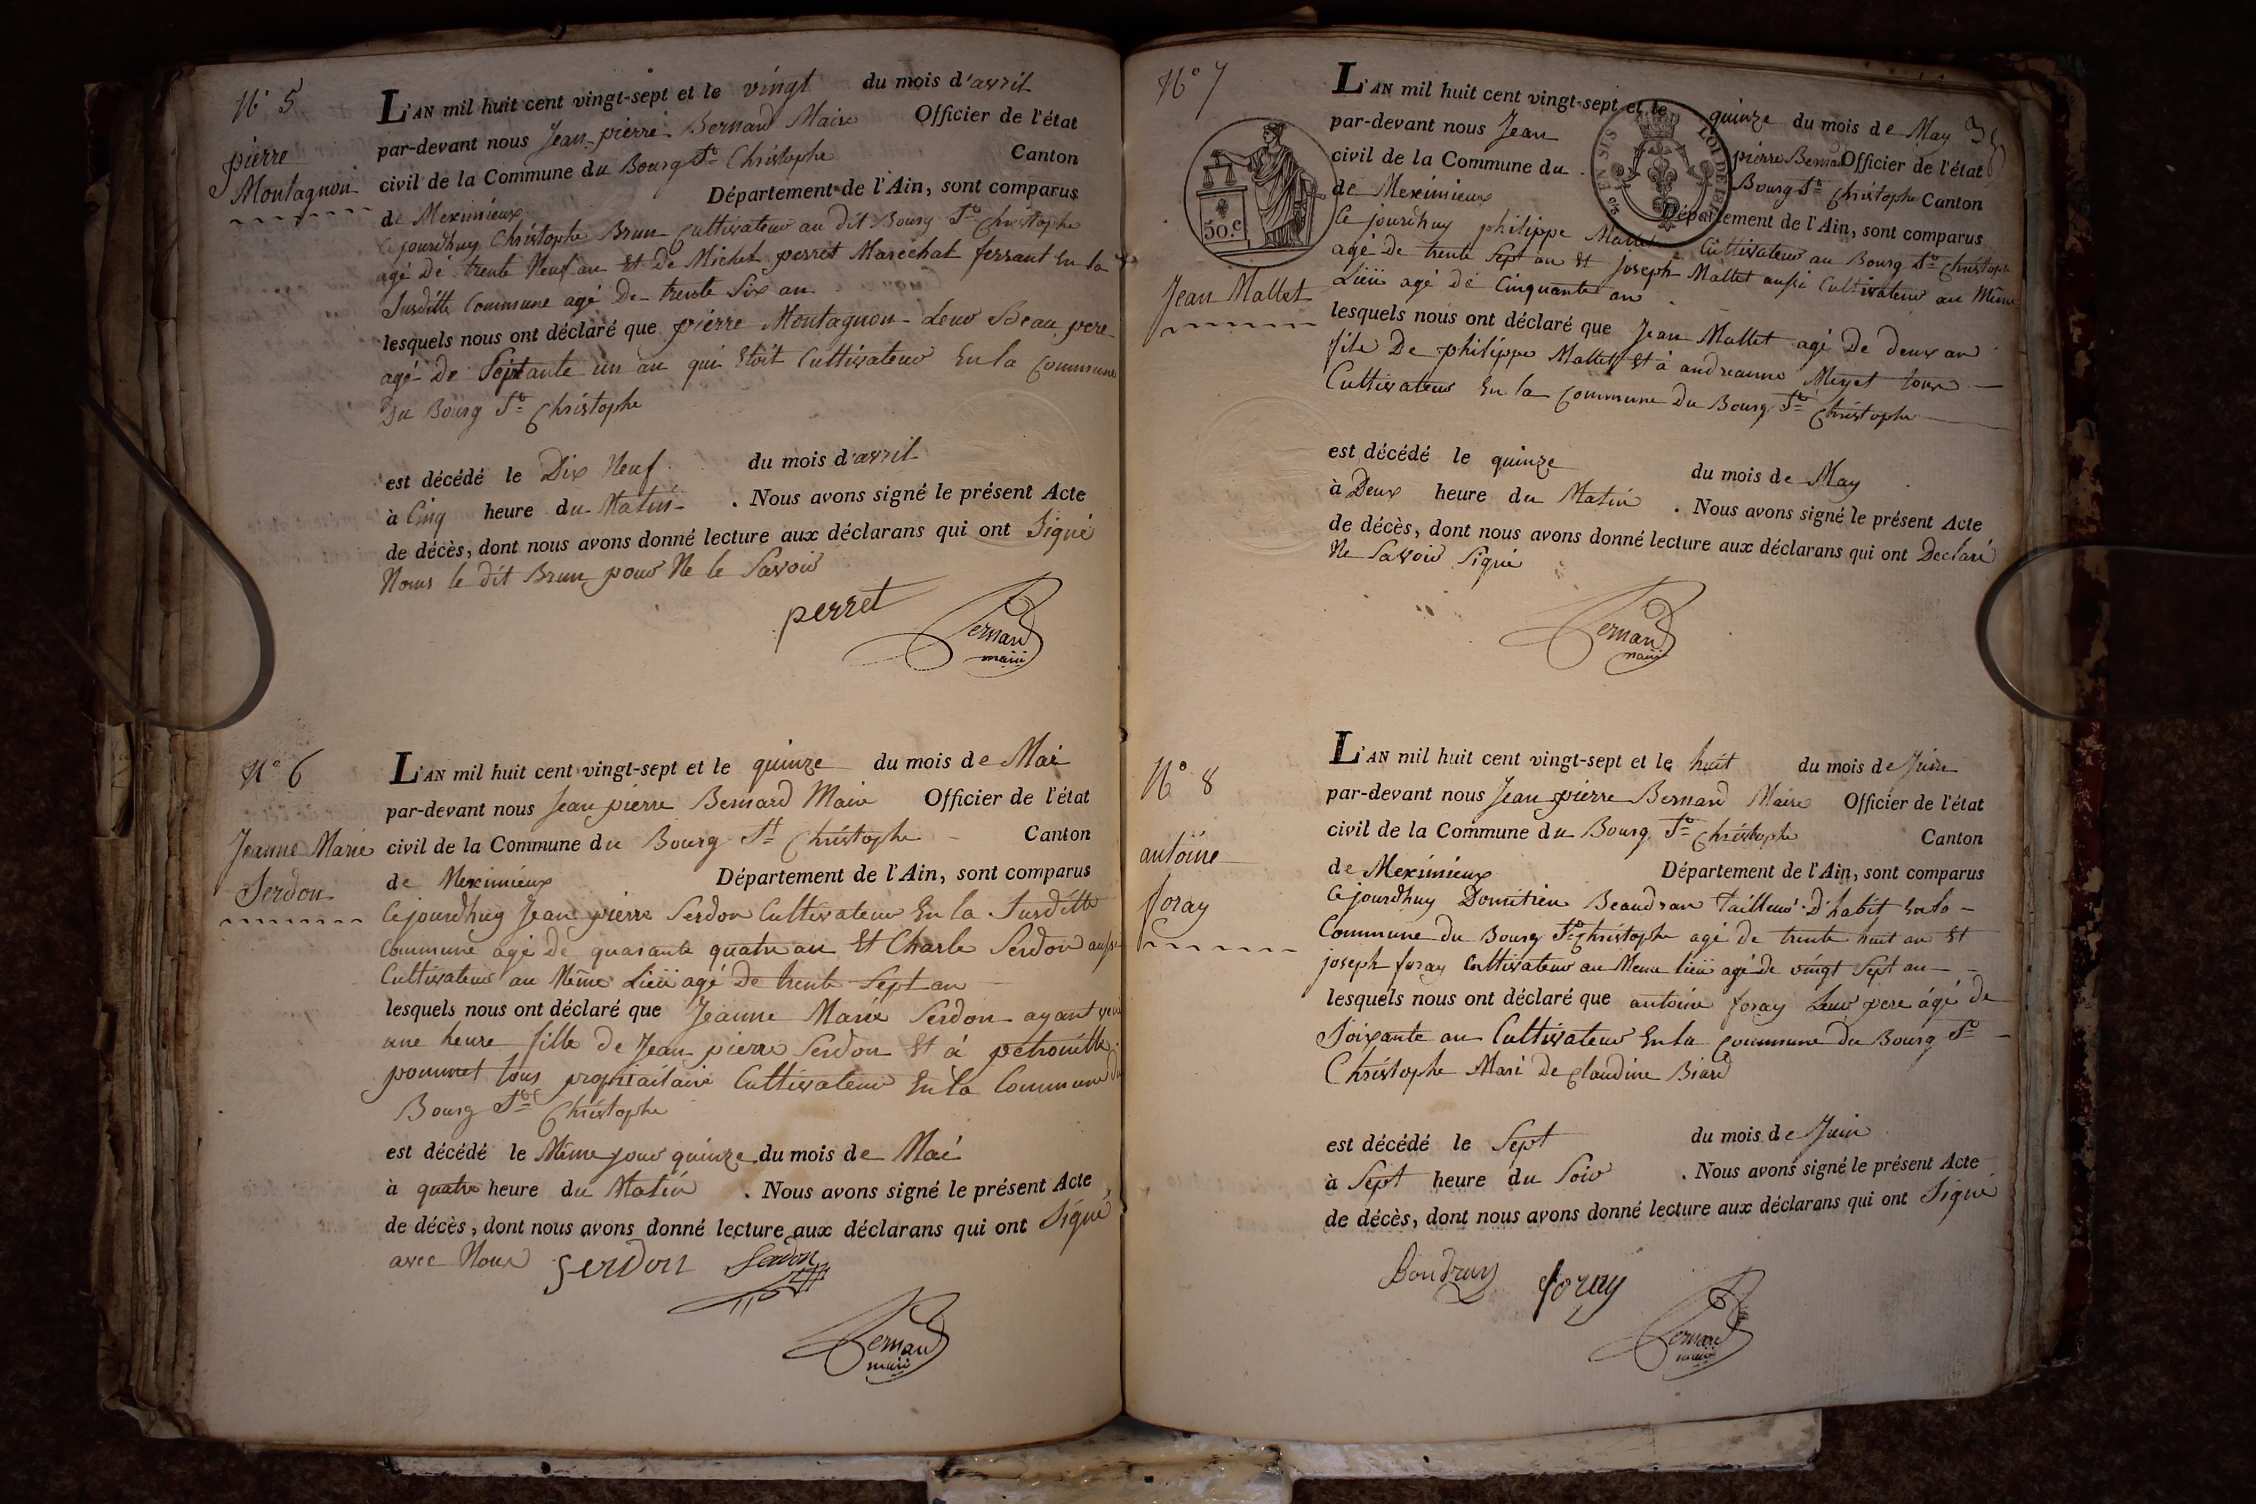 N° 5
pierre
Montagnon
L'AN mil huit cent vingt-sept et le vingt du mois d'avril
par-devant nous Jean pierre Bernard Maire Officier de l'état
civil de la Commune du Bourg St Christophe Canton
de Meximieux Département de l'Ain, sont comparus
Cejourdhuy Christophe Brun Cultivateur au dit Bourg St Christophe
agé de trente Neuf an Et de Michel perret Marechal ferrant En la
Susditte Commune agé De trente Six an
lesquels nous ont déclaré que pierre Montagnon Leur Beau pere
agé De Soixante un an qui Etoit Cultivateur En la Commune
Du Bourg St Christophe
est décédé le Dix Neuf du mois d'avril
à Cinq heure du Matin . Nous avons signé le présent Acte
de décès, dont nous avons donné lecture aux déclarans qui ont Signé
Nous le dit Brun pour Ne le Savoir
perret
Bernard
maire
N° 6
Jeanne Marie
Serdon
L'AN mil huit cent vingt-sept et le quinze du mois de Mai
par-devant nous Jean pierre Bernard Maire Officier de l'état
civil de la Commune du Bourg St Christophe Canton
de Meximieux Département de l'Ain, sont comparus
Cejourdhuy Jean pierre Serdon Cultivateur En la Susditte
Commune agé de quarante quatre an Et Charle Serdon aussi
Cultivateur au Même Lieü agé De trente Sept an
lesquels nous ont déclaré que Jeanne Marie Serdon ayant
une heure fille de Jean pierre Serdon Et á petronille
pommet tous Cultivateur En la Commune du
Bourg St Christophe
est décédé le Même jour quinze du mois de Mai
à quatre heure du Matin . Nous avons signé le présent Acte
de décès, dont nous avons donné lecture aux déclarans qui ont Signé
avec Nous Serdon Serdon
Bernard
maire
N° 7
50.c
EN SUS
LOI DE
Jean Mallet
L'AN mil huit cent vingt-sept et le quinze du mois de May
par-devant nous Jean pierre Bernard Officier de l'état
civil de la Commune du Bourg St Christophe Canton
de Meximieux Département de l'Ain, sont comparus
Ce jourdhuy philippe Mallet Cultivateur au Bourg St Christophe
agé De trente Sept an Et Joseph Mallet aussi Cultivateur au Même
Lieü agé de Cinquante an
lesquels nous ont déclaré que Jean Mallet agé De deux an
fils De philippe Mallet Et á andreanne tous
Cultivateur En la Commune Du Bourg St Christophe
est décédé le quinze du mois de May
à Deux heure du Matin . Nous avons signé le présent Acte
de décès, dont nous avons donné lecture aux déclarans qui ont Declaré
Ne Savoir Signé
Bernard
maire
N° 8
antoine
foray
L'AN mil huit cent vingt-sept et le huit du mois de Juin
par-devant nous Jean pierre Bernard Maire Officier de l'état
civil de la Commune du Bourg St Christophe Canton
de Meximieux Département de l'Ain, sont comparus
Cejourdhuy Domitien Beaudran Tailleur D'habit En la
Commune Du Bourg St Christophe agé de trente huit an Et
joseph foray Cultivateur au Meme lieü agé de vingt Sept an
lesquels nous ont déclaré que antoine foray Leur pere ágé de
Soixante an Cultivateur En la Commune du Bourg St
Christophe Mari de Claudine Biard
est décédé le Sept du mois de Juin
à Sept heure du Soir . Nous avons signé le présent Acte
de décès, dont nous avons donné lecture aux déclarans qui ont Signé
Boudran foray
Bernard
maire